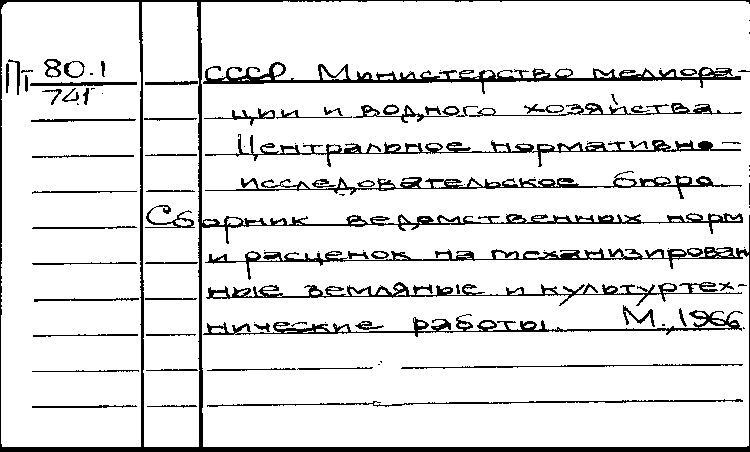 Пт 80.1 СССР. Министерство мелиора-
741 ции и водного хозяйства.
Центральное нормативно-
исследовательское бюро
Сборник ведомственных норм
и расценок на механизирован
ные земляные и культуртех-
нические работы. М., 1966